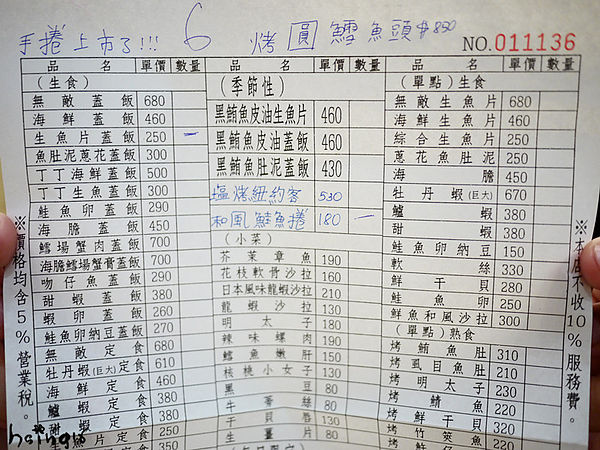 手捲上市了!!! 6 烤圓鱈魚頭$850
NO.011136
品名 單價 數量
(生食)
無敵蓋飯 680
海鮮蓋飯 460
生魚片蓋飯 250 一
魚肚泥蔥花蓋飯 300
丁丁海鮮蓋飯 500
丁丁生魚蓋飯 300
鮭魚卵蓋飯 290
海膽蓋飯 450
鱈場蟹肉蓋飯 700
海膽鱈場蟹膏蓋飯 700
吻仔魚蓋飯 290
甜蝦蓋飯 380
蝦卵蓋飯 260
鮭魚卵納豆蓋飯 270
無敵定食 680
牡丹蝦(巨大)定食 610
海鮮定食 460
鱸蝦定食 380
甜蝦定食 380
生魚片定食 250
品名 單價 數量
(季節性)
黑鮪魚皮油生魚片 460
黑鮪魚皮油蓋飯 460
黑鮪魚肚泥蓋飯 430
塩烤紐約客 530
和風鮭魚捲 180 一
(小菜)
芥茉章魚 190
花枝軟骨沙拉 160
日本風味龍蝦沙拉 210
龍蝦沙拉 130
明太子 180
辣味螺肉 190
鱈魚嫩肝 150
核桃小女子 130
黑豆 80
牛蒡絲 80
干貝唇 130
生薑片 80
品名 單價 數量
(單點)生食
無敵生魚片 680
海鮮生魚片 460
綜合生魚片 250
蔥花魚肚泥 250
海膽 450
牡丹蝦(巨大) 670
鱸蝦 380
甜蝦 380
鮭魚卵納豆 150
軟絲 330
鮮干貝 280
鮭魚卵 250
鮮魚和風沙拉 300
(單點)熟食
烤鮪魚肚 310
烤虱目魚肚 210
烤明太子 230
烤鯖魚 220
烤鮮干貝 320
烤竹筴魚 220
※價格均含5%營業稅。
※本店不收10%服務費。